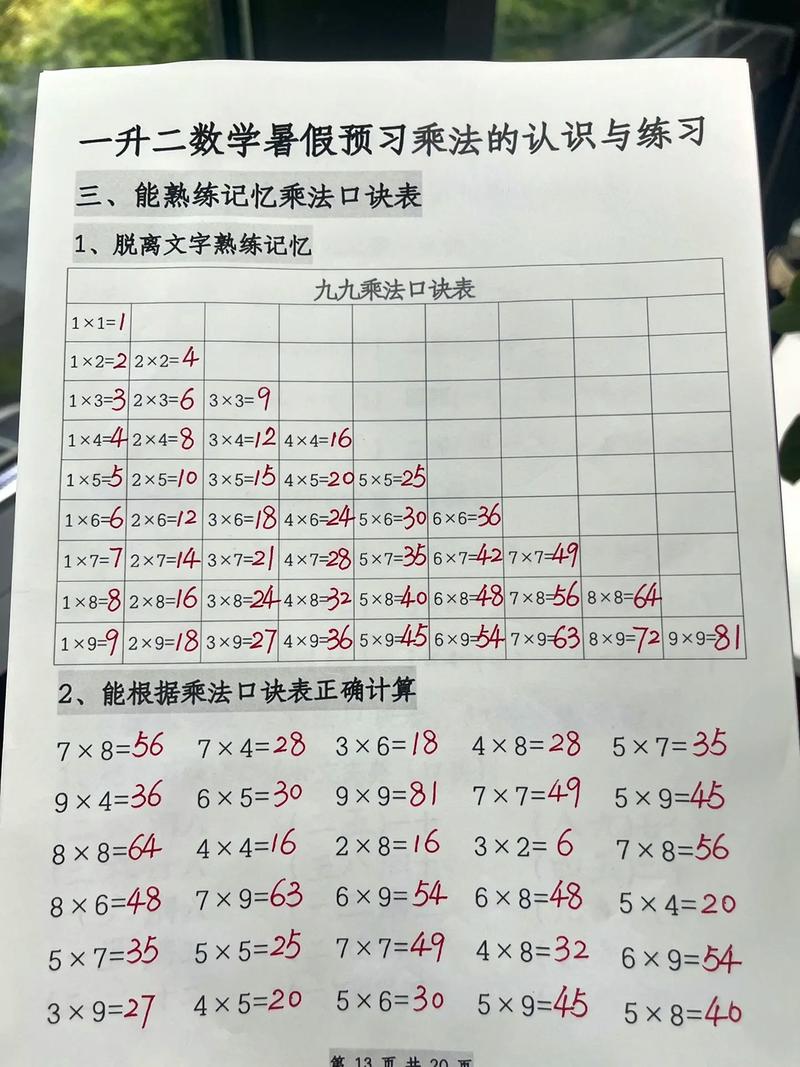 一升二数学暑假预习乘法的认识与练习
三、能熟练记忆乘法口诀表
1、脱离文字熟练记忆
九九乘法口诀表
1×1=1
1×2=2 2×2=4
1×3=3 2×3=6 3×3=9
1×4=4 2×4=8 3×4=12 4×4=16
1×5=5 2×5=10 3×5=15 4×5=20 5×5=25
1×6=6 2×6=12 3×6=18 4×6=24 5×6=30 6×6=36
1×7=7 2×7=14 3×7=21 4×7=28 5×7=35 6×7=42 7×7=49
1×8=8 2×8=16 3×8=24 4×8=32 5×8=40 6×8=48 7×8=56 8×8=64
1×9=9 2×9=18 3×9=27 4×9=36 5×9=45 6×9=54 7×9=63 8×9=72 9×9=81
2、能根据乘法口诀表正确计算
7×8=56 7×4=28 3×6=18 4×8=28 5×7=35
9×4=36 6×5=30 9×9=81 7×7=49 5×9=45
8×8=64 4×4=16 2×8=16 3×2=6 7×8=56
8×6=48 7×9=63 6×9=54 6×8=48 5×4=20
5×7=35 5×5=25 7×7=49 4×8=32 6×9=54
3×9=27 4×5=20 5×6=30 5×9=45 5×8=40
第 13 页 共 20 页